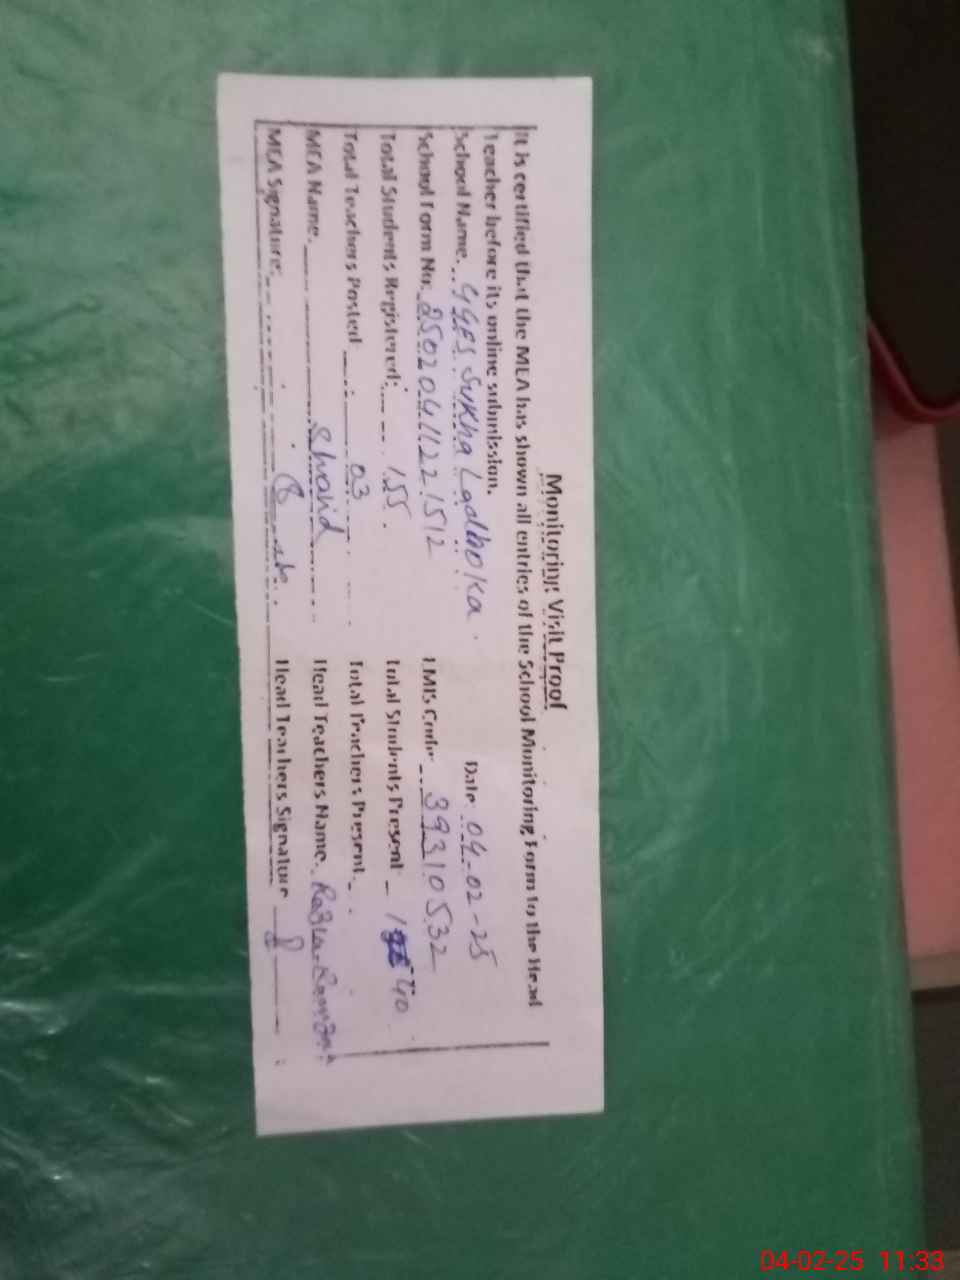 Monitoring Visit Proof
It is certified that the MEA has shown all entries of the School Monitoring Form to the Head
Teacher before its online submission.
Date 04-02-25
School Name. GGES Sukha Ladhoka.
School Form No: 25020411221512 EMIS Code 39310532
Total Students Registered: 155. Total Students Present 140
Total Teachers Posted 03 Total Teachers Present
MEA Name. Head Teachers Name. Razia
MEA Signature: Head Teachers Signature
04-02-25 11:33